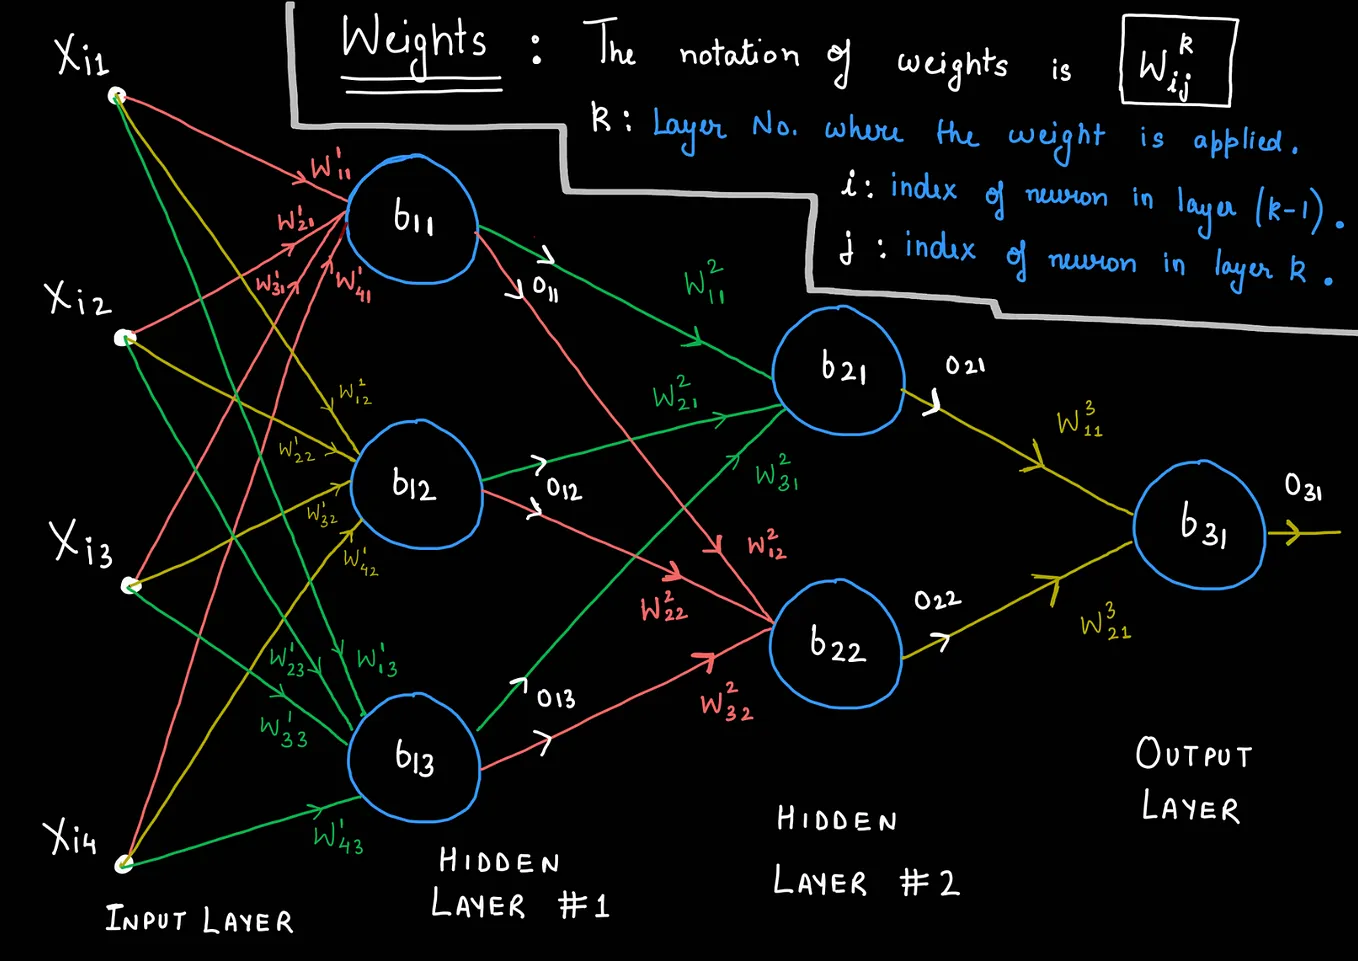 Weights : The notation of weights is W^k_ij
k: Layer No. where the weight is applied.
i: index of neuron in layer (k-1).
j: index of neuron in layer k.
Xi1
Xi2
Xi3
Xi4
W^1_11
W^1_21
W^1_31
W^1_41
W^1_12
W^1_22
W^1_32
W^1_42
W^1_13
W^1_23
W^1_33
W^1_43
b11
b12
b13
O11
O12
O13
W^2_11
W^2_21
W^2_31
W^2_12
W^2_22
W^2_32
b21
b22
O21
O22
W^3_11
W^3_21
b31
O31
INPUT LAYER
HIDDEN
LAYER #1
HIDDEN
LAYER #2
OUTPUT
LAYER